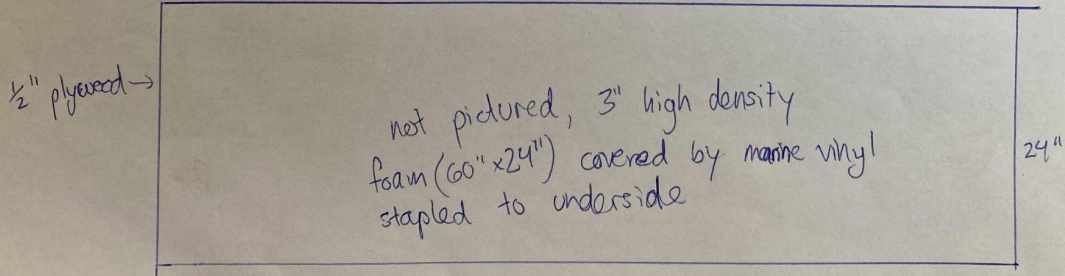 1/2" plywood →
not pictured, 3" high density
foam (60" x 24") covered by marine vinyl
stapled to underside
24"